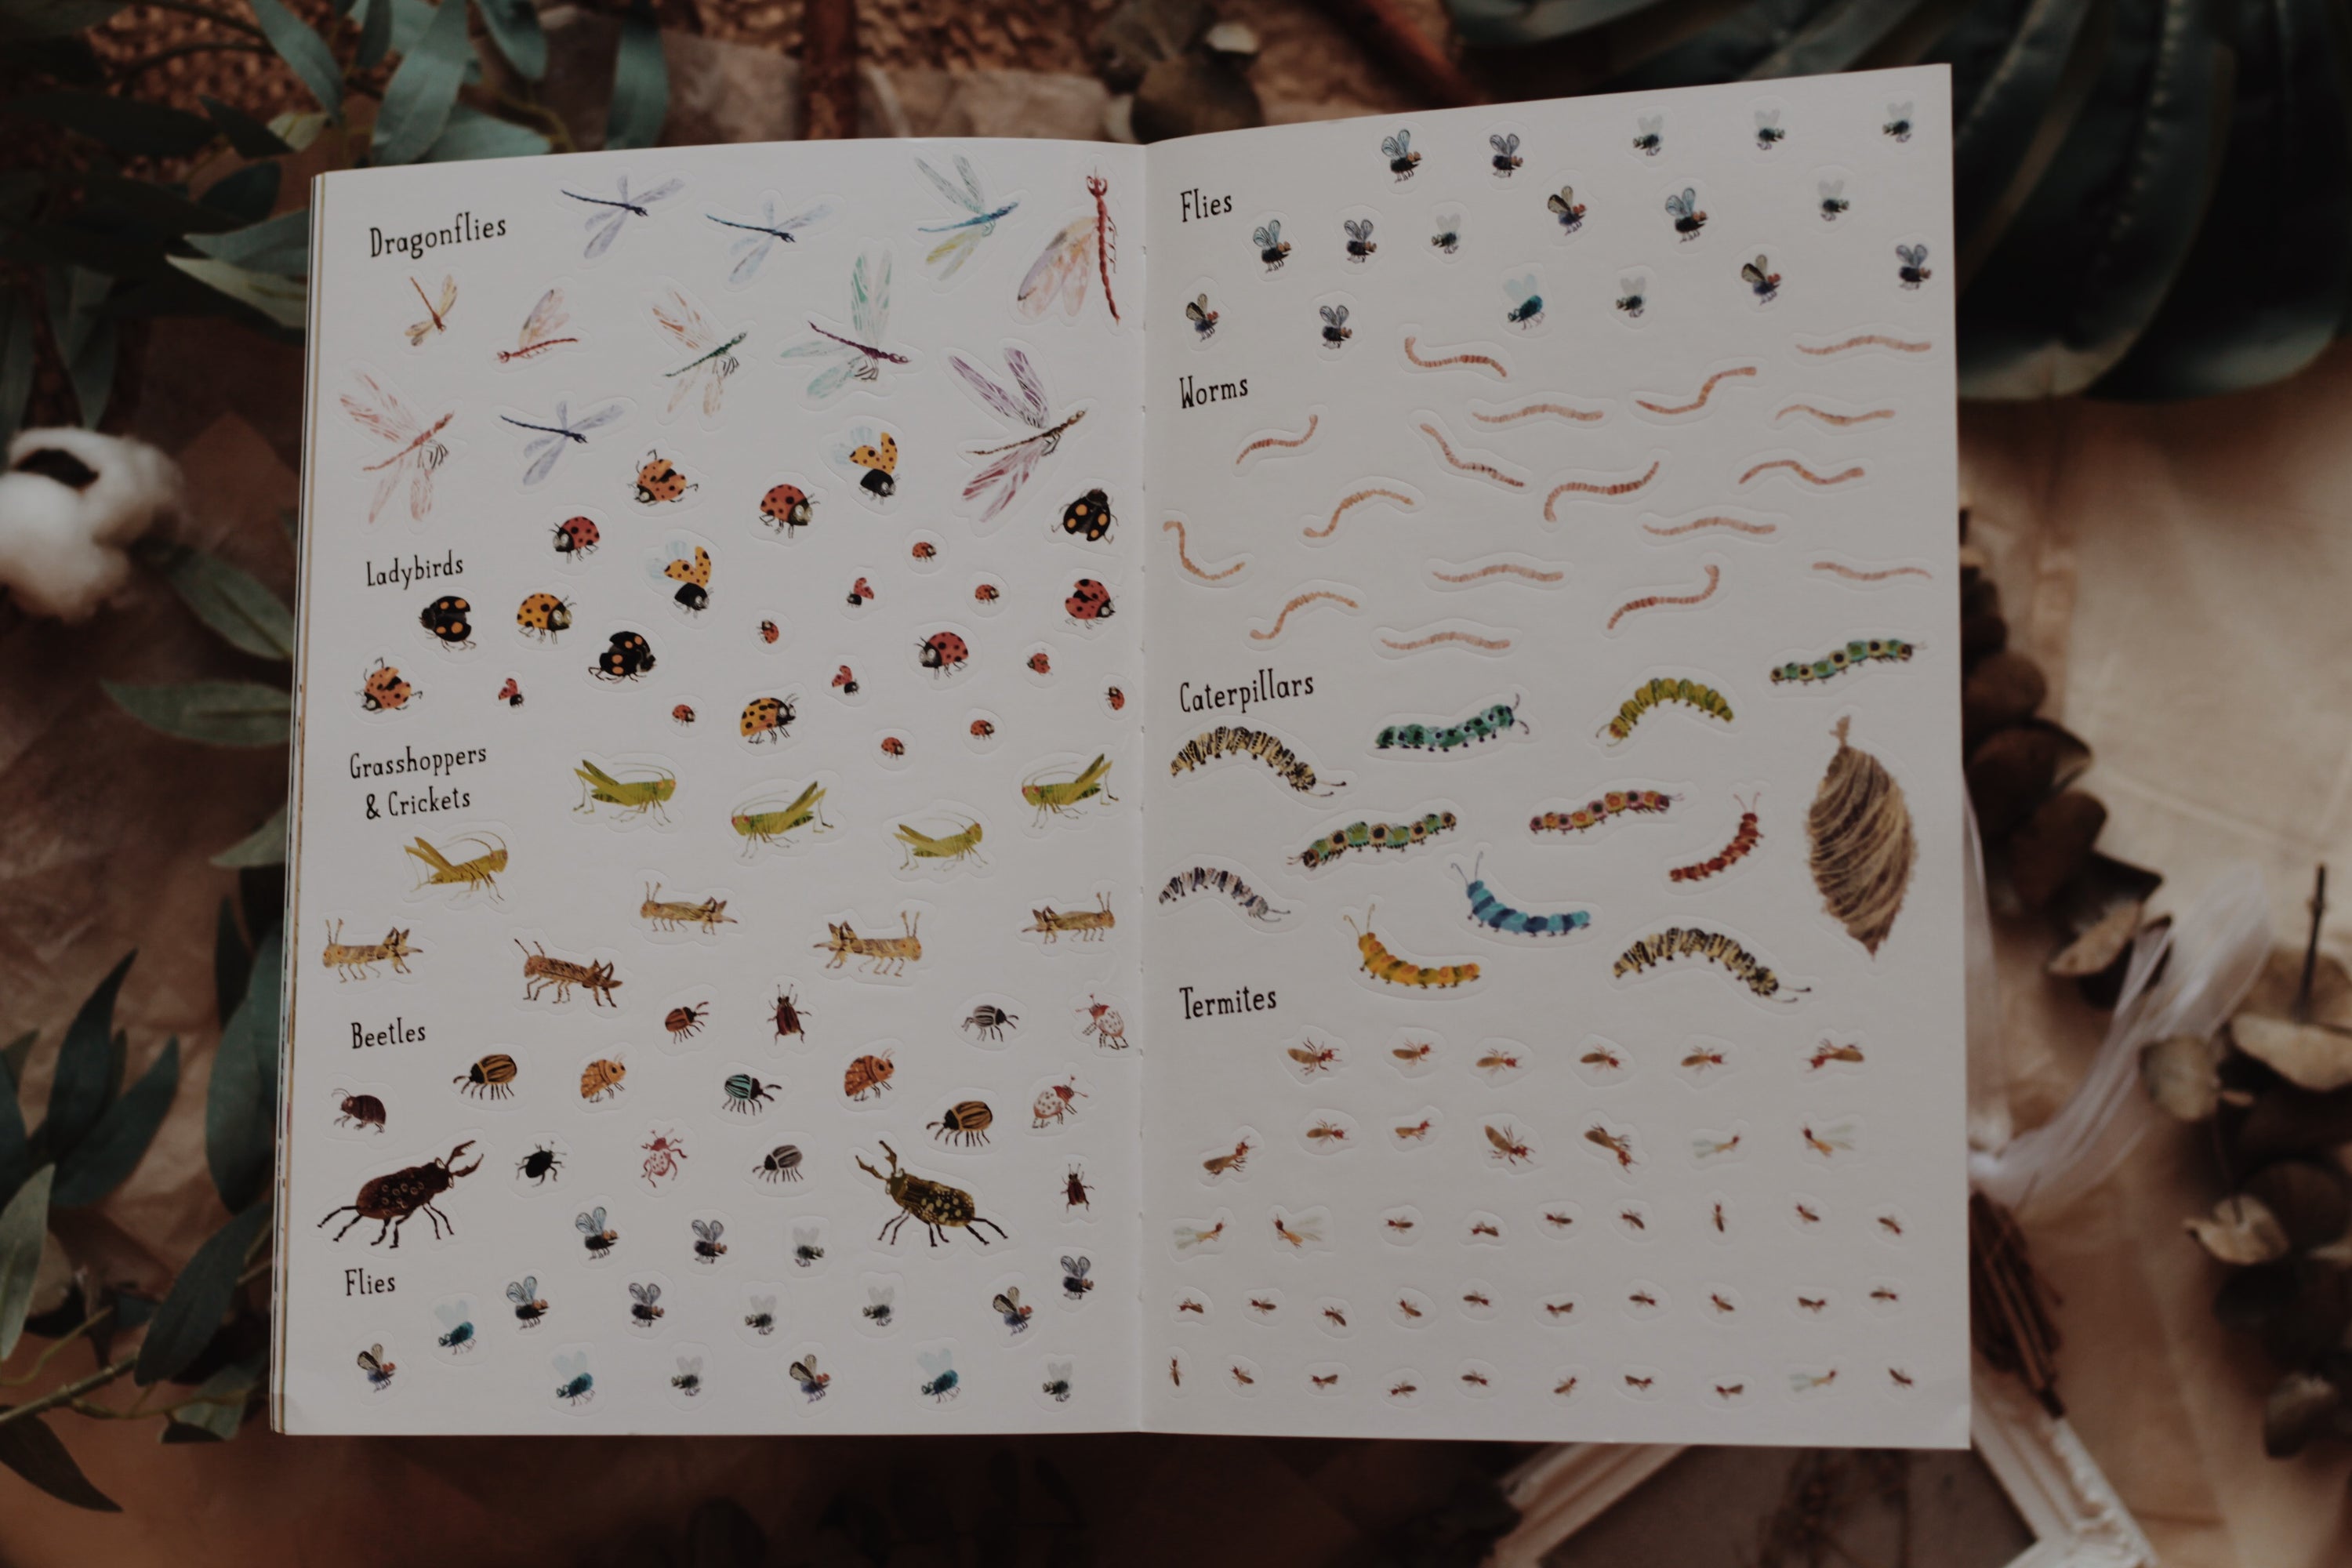 Dragonflies
Ladybirds
Grasshoppers
& Crickets
Beetles
Flies
Flies
Worms
Caterpillars
Termites